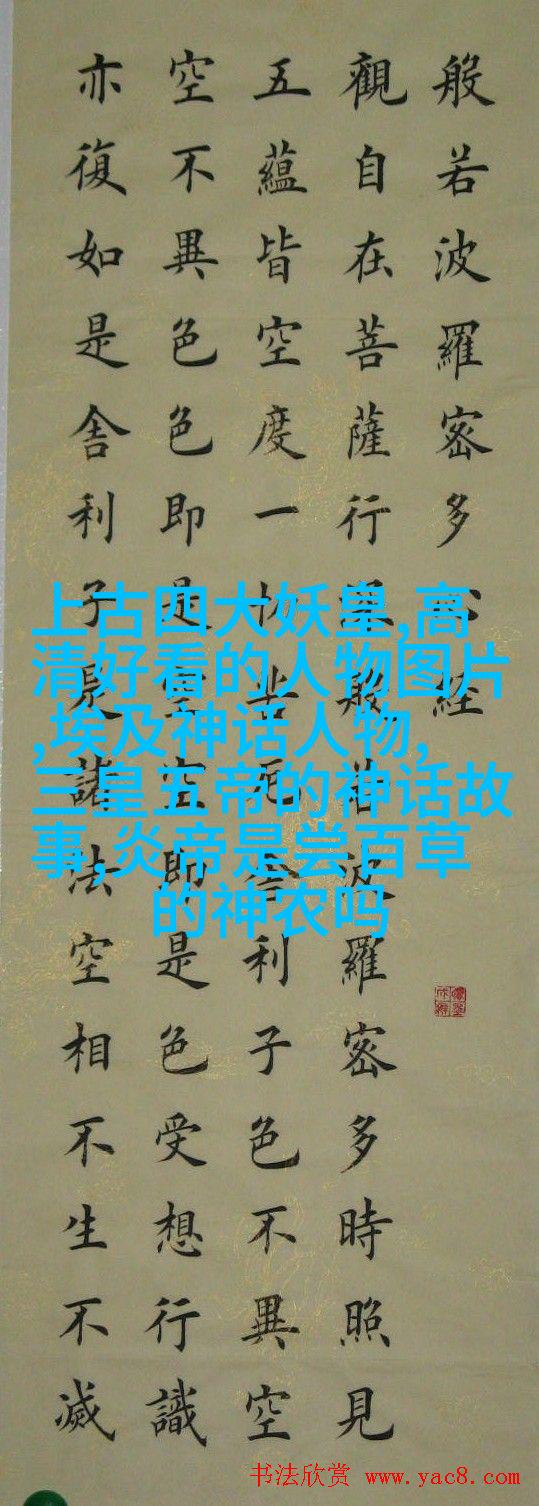 般若波羅密多心經
觀自在菩薩行深般若波羅密多時照見
五蘊皆空度一切苦厄舍利子色不異空
空不異色色即是空空即是色受想行識
亦復如是舍利子是諸法空相不生不滅
上古四大妖皇,高
清好看的人物图片
,埃及神话人物,
三皇五帝的神话故
事,炎帝是尝百草
的神农吗
书法欣赏 www.yac8.com